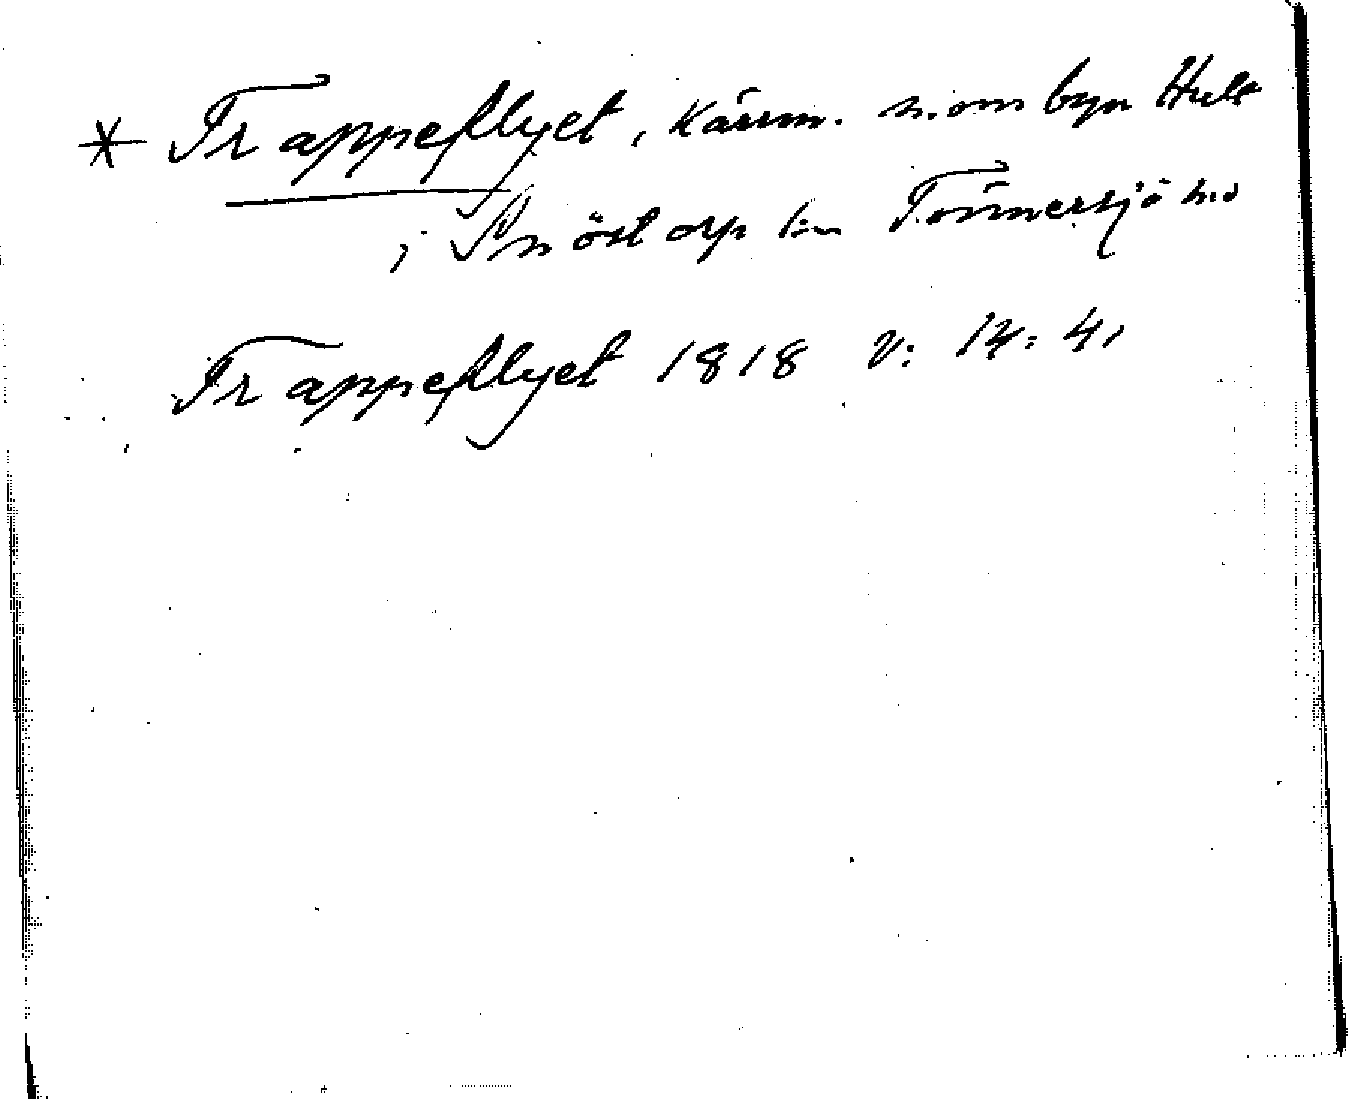 * Trappeflyet, Kärrm. n. om byn Hult
i Snöstorp sn Tönnersjö hd
Trappeflyet 1818 V: 14: 41